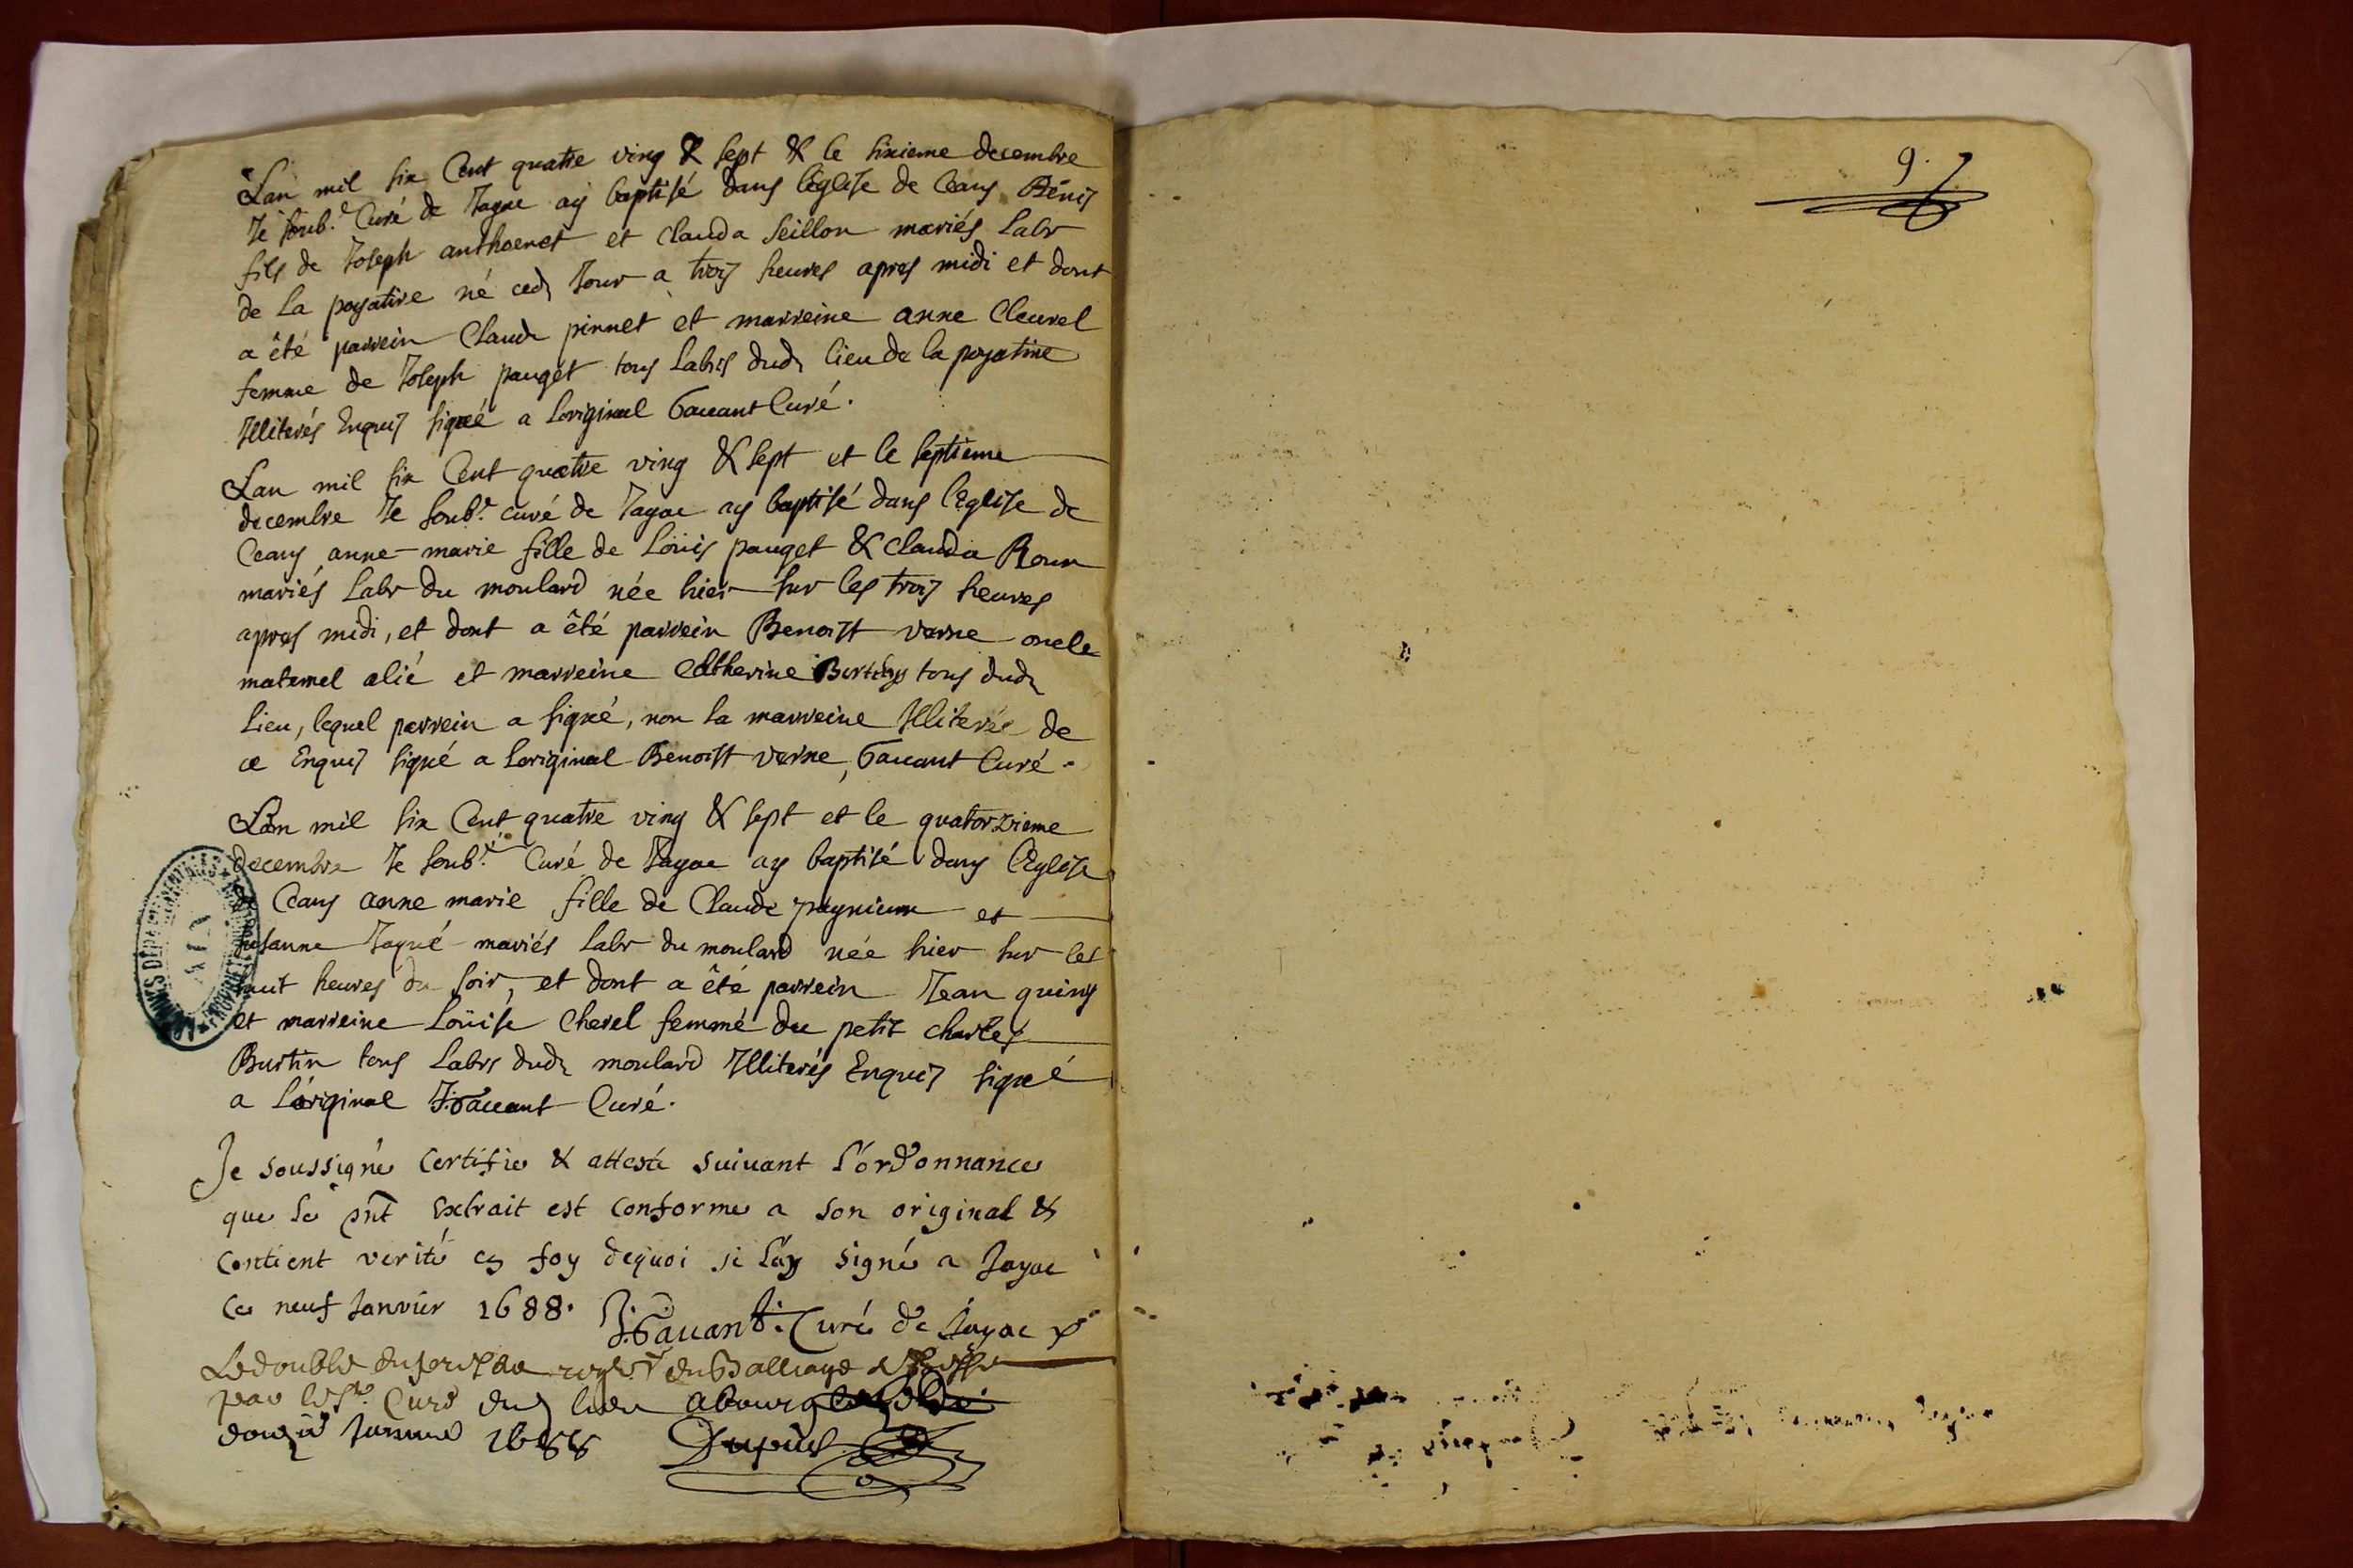 Lan mil six Cent quatre ving & sept & le sixieme decembre
Je soub.é Curé de Jayac ay baptisé dans leglise de Ceans Dénis
fils de Joseph anthoenet et Clauda Seillon mariés Labr
de la poyatire né ced. Jour a trois heures apres midi et dont
a êté parrein Claude pinnet et marreine anne Cleurel
femme de Joseph pauget tous Labrs dud. lieu de la poyatire
Illiterés Enquis signé a loriginal Gauant Curé.
Lan mil six Cent quatre ving & sept et le septieme
decembre Je soub.é curé de Jayac ay baptisé dans l'eglise de
Ceans anne-marie fille de Loüis pauget & clauda Roux
mariés Labr du moulard née hier sur les trois heures
apres midi, et dont a êté parrein Benoist verne oncle
maternel alié et marreine Catherine tous dud.
Lieu, lequel parrein a signé, non la marreine Illiterée de
ce Enquis signé a loriginal Benoist verne, Gauant Curé.
Lan mil six Cent quatre ving & sept et le quatorzieme
decembre Je soub.é Curé de Jayac ay baptisé dans l'eglise
de Ceans anne marie fille de Claude et
susanne Jayué mariés labr du moulard née hier sur les
huit heures du soir, et dont a êté parrein Jean
et marreine Loüise Chevel femme du petit charles
Burtin tous Labrs dud. moulard Illiterés Enquis signé
a l'original J. Gauant Curé.
Je soussigné Certifie & atteste suiuant l'ordonnance
que le pnt Extrait est conforme a son original &
contient verité en foy dequoi je l'ay signé a Jayac
Ce neuf Januier 1688. J. Gauant. Curé de Jayac
Le double du Balliage
par led. sr. Curé dud. lieu a bourg
1688 Dupuis
9.
ARCHIVES DÉPARTEMENTALES
AIN